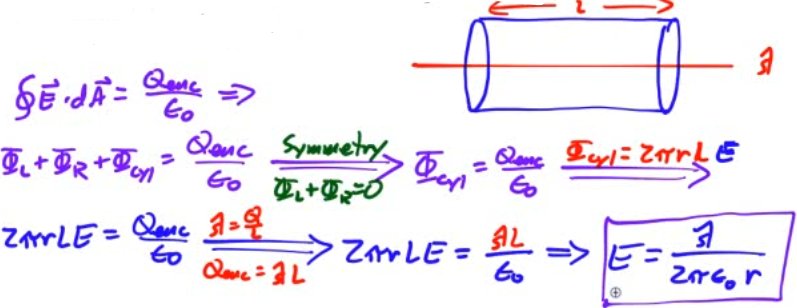 L
λ
∮E⃗·dA⃗ = Qenc/ϵ₀ ⇒
Φ_L + Φ_R + Φ_cyl = Qenc/ϵ₀ Symmetry Φ_L + Φ_R = 0 ⇒ Φ_cyl = Qenc/ϵ₀ Φ_cyl = 2πrLE ⇒
2πrLE = Qenc/ϵ₀ λ = Q/L Qenc = λL ⇒ 2πrLE = λL/ϵ₀ ⇒ E = λ/2πϵ₀r